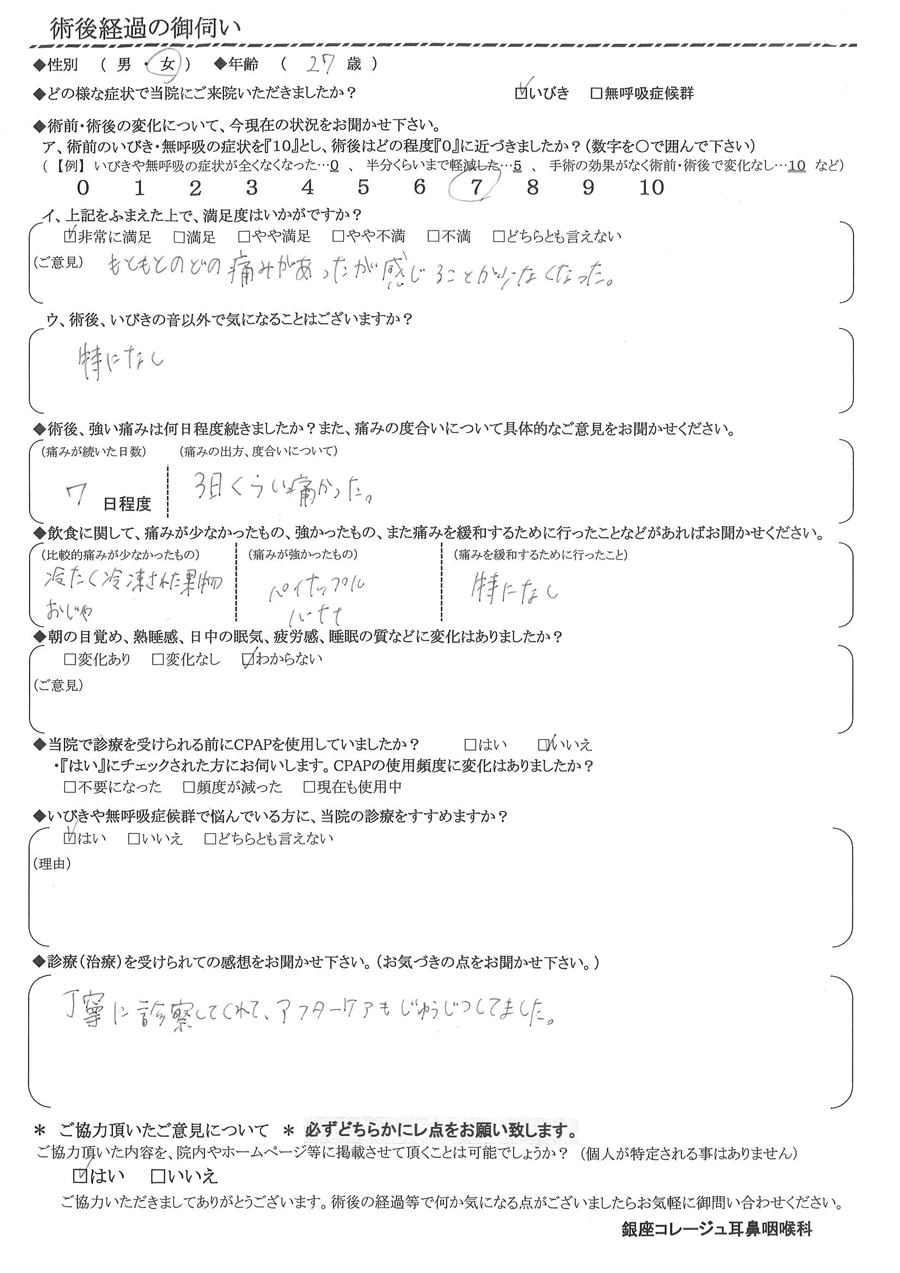 術後経過の御伺い
◆性別 （ 男 ・ 女 ） ◆年齢 （ 27 歳 ）
◆どの様な症状で当院にご来院いただきましたか？ ☑いびき □無呼吸症候群
◆術前・術後の変化について、今現在の状況をお聞かせ下さい。
ア、術前のいびき・無呼吸の症状を『10』とし、術後はどの程度『0』に近づきましたか？（数字を〇で囲んで下さい）
（ 【例】 いびきや無呼吸の症状が全くなくなった…0 、 半分くらいまで軽減した…5 、 手術の効果がなく術前・術後で変化なし…10 など）
0 1 2 3 4 5 6 7 8 9 10
イ、上記をふまえた上で、満足度はいかがですか？
☑非常に満足 □満足 □やや満足 □やや不満 □不満 □どちらとも言えない
（ご意見） もともとのどの痛みがあったが感じることが少なくなった。
ウ、術後、いびきの音以外で気になることはございますか？
特になし
◆術後、強い痛みは何日程度続きましたか？また、痛みの度合いについて具体的なご意見をお聞かせください。
（痛みが続いた日数） （痛みの出方、度合いについて）
7 日程度 3日くらい痛かった。
◆飲食に関して、痛みが少なかったもの、強かったもの、また痛みを緩和するために行ったことなどがあればお聞かせください。
（比較的痛みが少なかったもの） （痛みが強かったもの） （痛みを緩和するために行ったこと）
冷たく冷凍された果物 パイナップル 特になし
おじや バナナ
◆朝の目覚め、熟睡感、日中の眠気、疲労感、睡眠の質などに変化はありましたか？
□変化あり □変化なし ☑わからない
（ご意見）
◆当院で診療を受けられる前にCPAPを使用していましたか？ □はい ☑いいえ
・『はい』にチェックされた方にお伺いします。CPAPの使用頻度に変化はありましたか？
□不要になった □頻度が減った □現在も使用中
◆いびきや無呼吸症候群で悩んでいる方に、当院の診療をすすめますか？
☑はい □いいえ □どちらとも言えない
（理由）
◆診療（治療）を受けられての感想をお聞かせ下さい。（お気づきの点をお聞かせ下さい。）
丁寧に診察してくれて、アフターケアもじゅうじつしてました。
＊ ご協力頂いたご意見について ＊ 必ずどちらかにレ点をお願い致します。
ご協力頂いた内容を、院内やホームページ等に掲載させて頂くことは可能でしょうか？ （個人が特定される事はありません）
☑はい □いいえ
ご協力いただきましてありがとうございます。術後の経過等で何か気になる点がございましたらお気軽に御問い合わせください。
銀座コレージュ耳鼻咽喉科